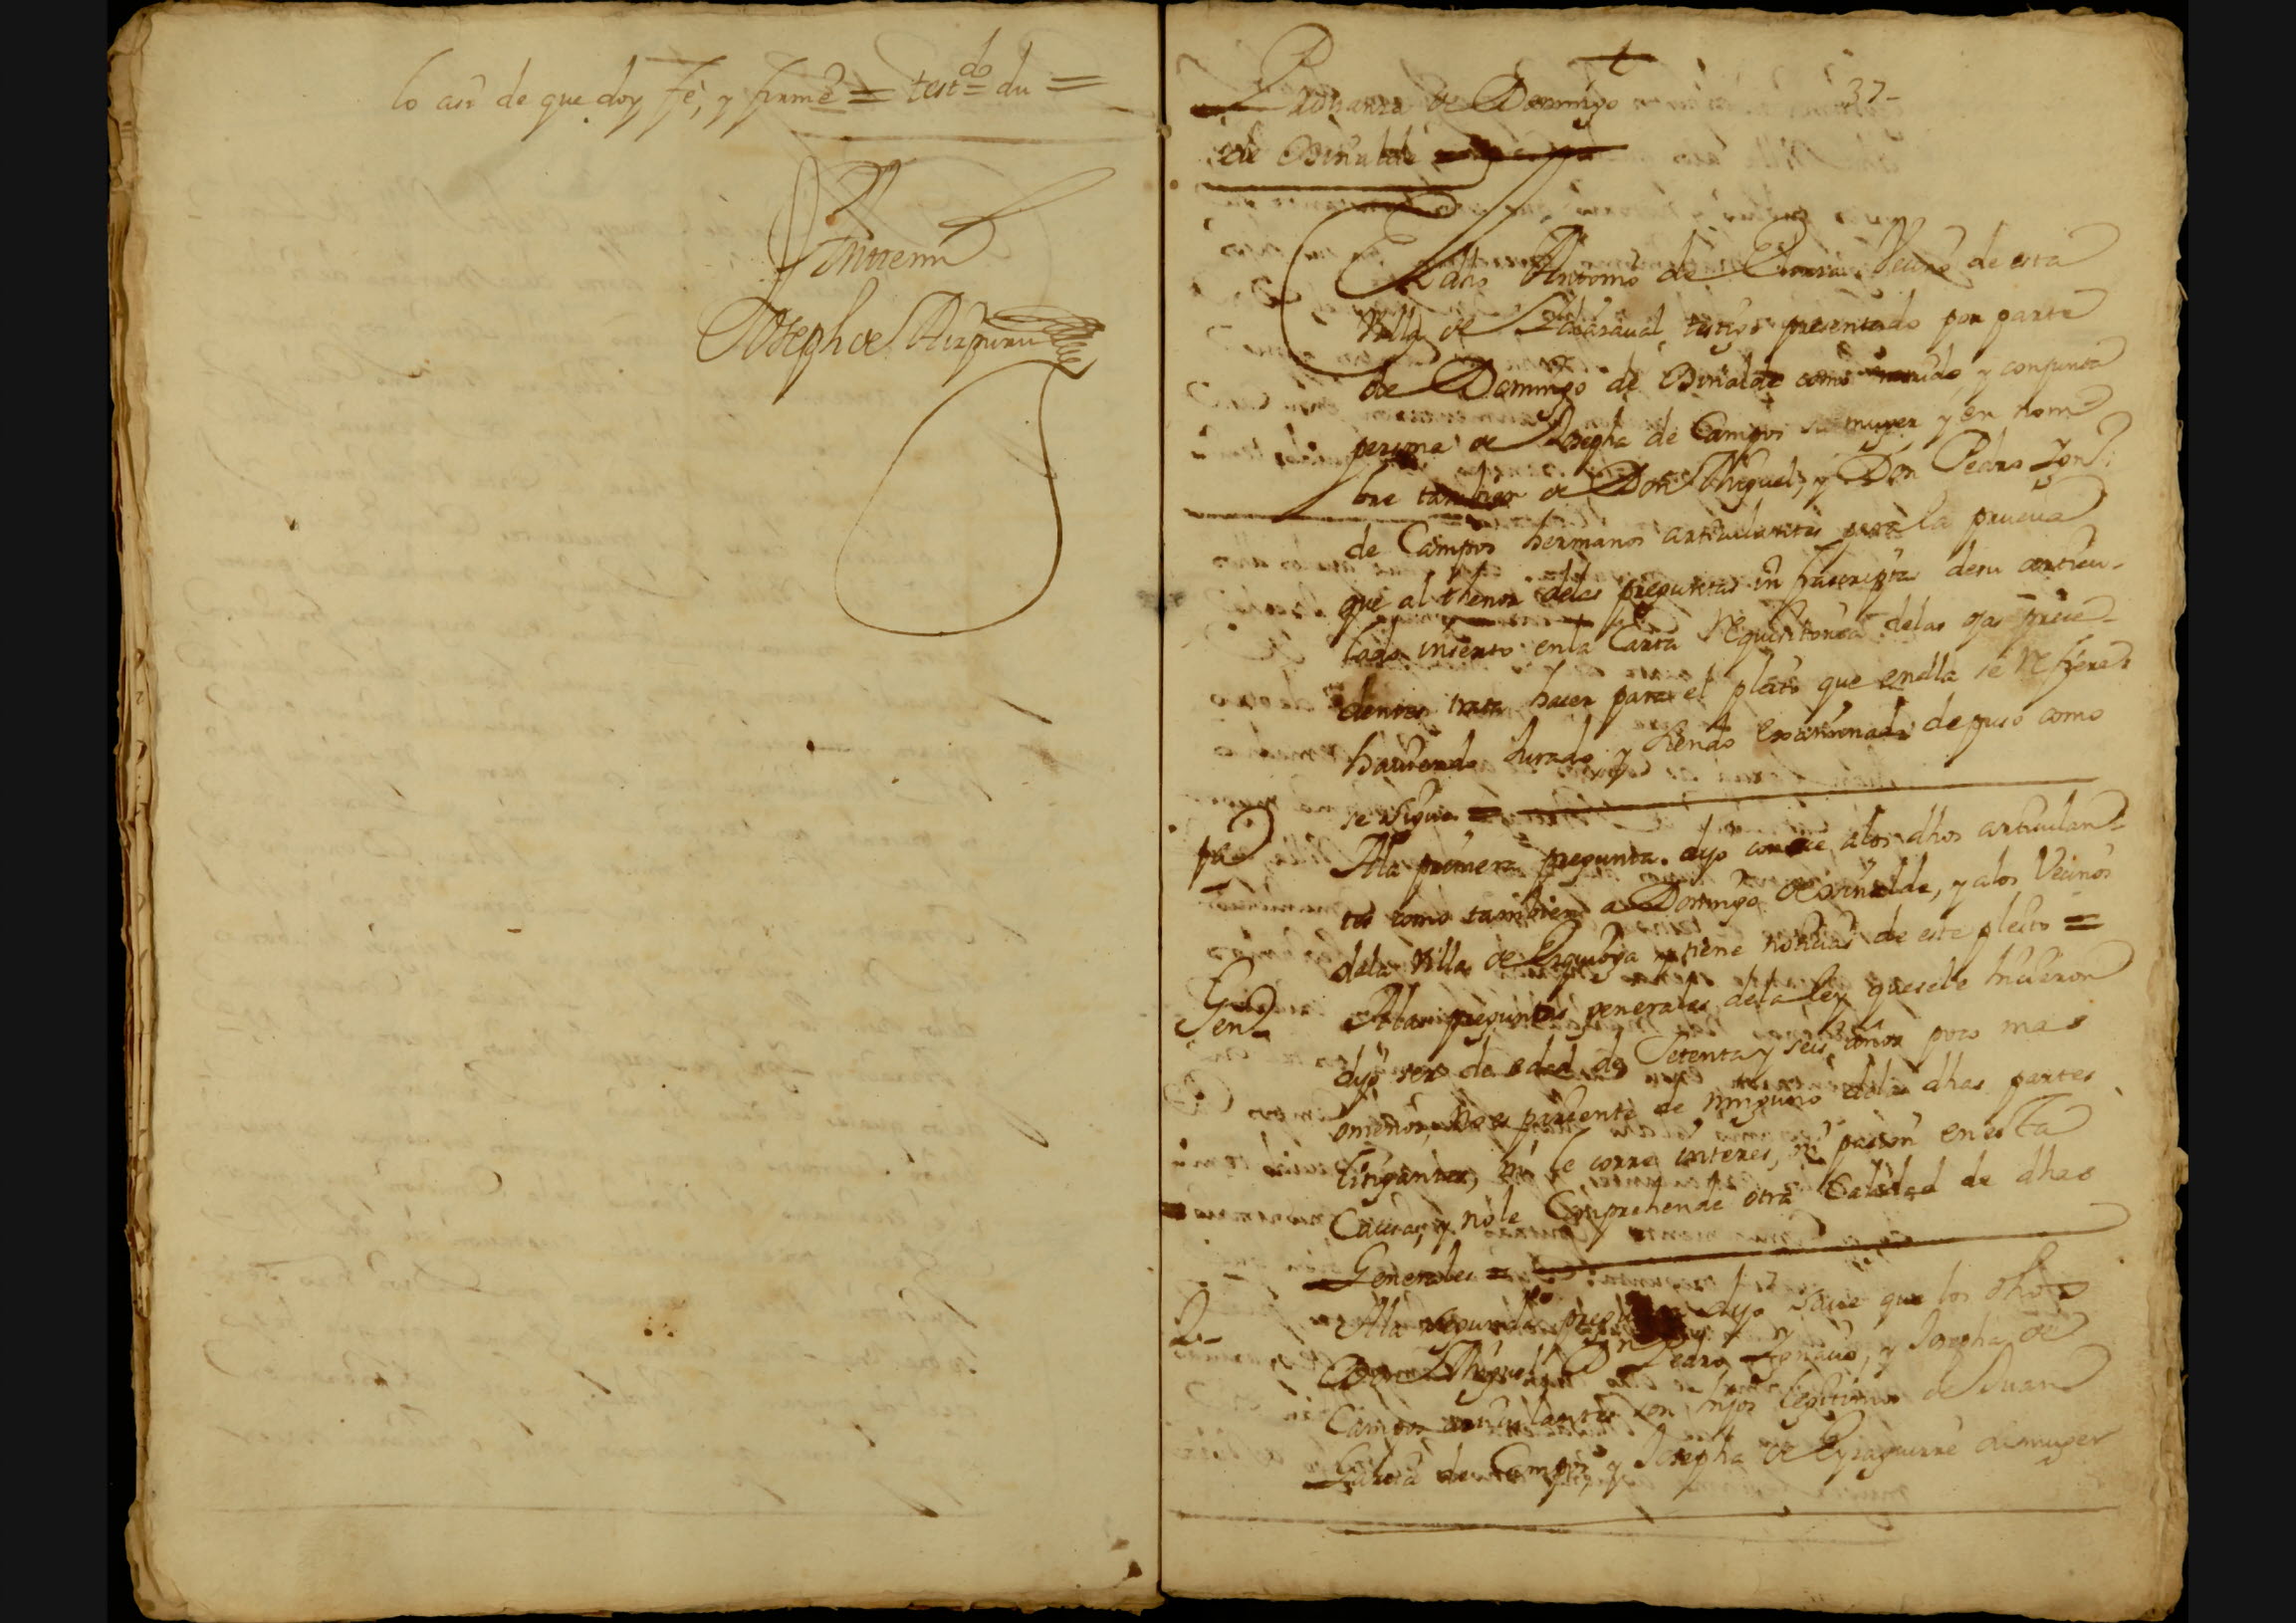 lo asi de que doy fè, y firmè = test.do du =
Antemi
Joseph de Aizpuru
37
Probanza de Domingo
de Biñalde
Pablo Antonio de Vecino de esta
Villa de testigo presentado por parte
de Domingo de Biñalde como marido y conjunta
persona de Josepha de Campos su muger y en nom
bre tambien de Don Miguel, y Don Pedro Ign.o
de Campos hermanos articulantes para la prueua
que al thenor delas preguntas infrascriptas desu articu-
lado inserto enla Carta Requisitoria delas ojas prece-
dentes trata hacer para el pleito que enella se Refiere
hauiendo Jurado y siendo examinado depuso como
se sigue =
pa Ala primera pregunta dijo conoce alos dhos articulan-
tes como tambien a Domingo de Biñalde, y alos Vecinos
dela Villa de Ezquioga y tiene noticias de este pleito =
Gen.s Alas preguntas generales dela ley quesele hicieron
dijo ser de edad de Setenta y seis años poco mas
omenos, no es pariente de ninguno delas dhas partes
litigantes, ni le corre interes, ni pasion en esta
Causa, y nole Comprehende otra Calidad de dhas
Generales =
2.- Ala segunda pregunta dijo saue que los dhos
Don Miguel, Dn Pedro Ignacio, y Josepha de
Campos articulantes son hijos legitimos de Juan
de Campos, y Josepha de Eyzaguirre su muger